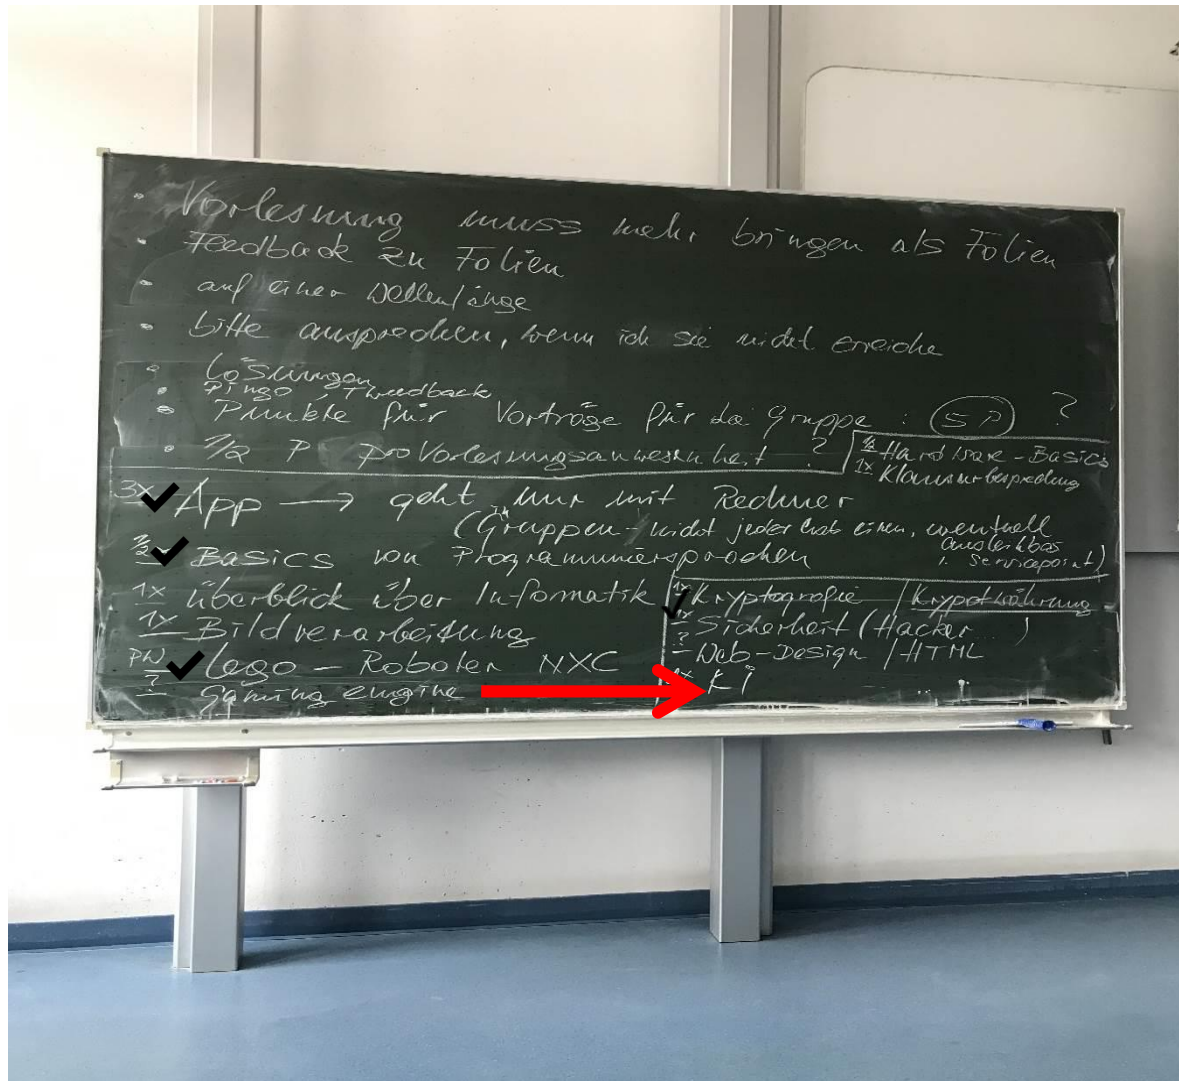 • Vorlesung muss mehr bringen als Folien
• Feedback zu Folien
• auf einer Wellenlänge
• bitte ansprechen, wenn ich sie nicht erreiche
• Lösungen
• Pingo, Tweedback
• Punkte für Vorträge für die Gruppe : 5 P ?
• 1/2 P pro Vorlesungsanwesenheit ?
Hardware - Basics
1x Klausurbesprechung
3x App → geht nur mit Rechner
(Gruppen - nicht jeder hat einen, eventuell
ausleihbar
i. Servicepoint)
Basics von Programmiersprachen
1x überblick über Informatik
1x Bildverarbeitung
PW Lego - Roboter NXC
? Gaming engine
1x Kryptografie / Kryptowährung
Sicherheit (Hacker ...)
? Web-Design / HTML
1x Ki